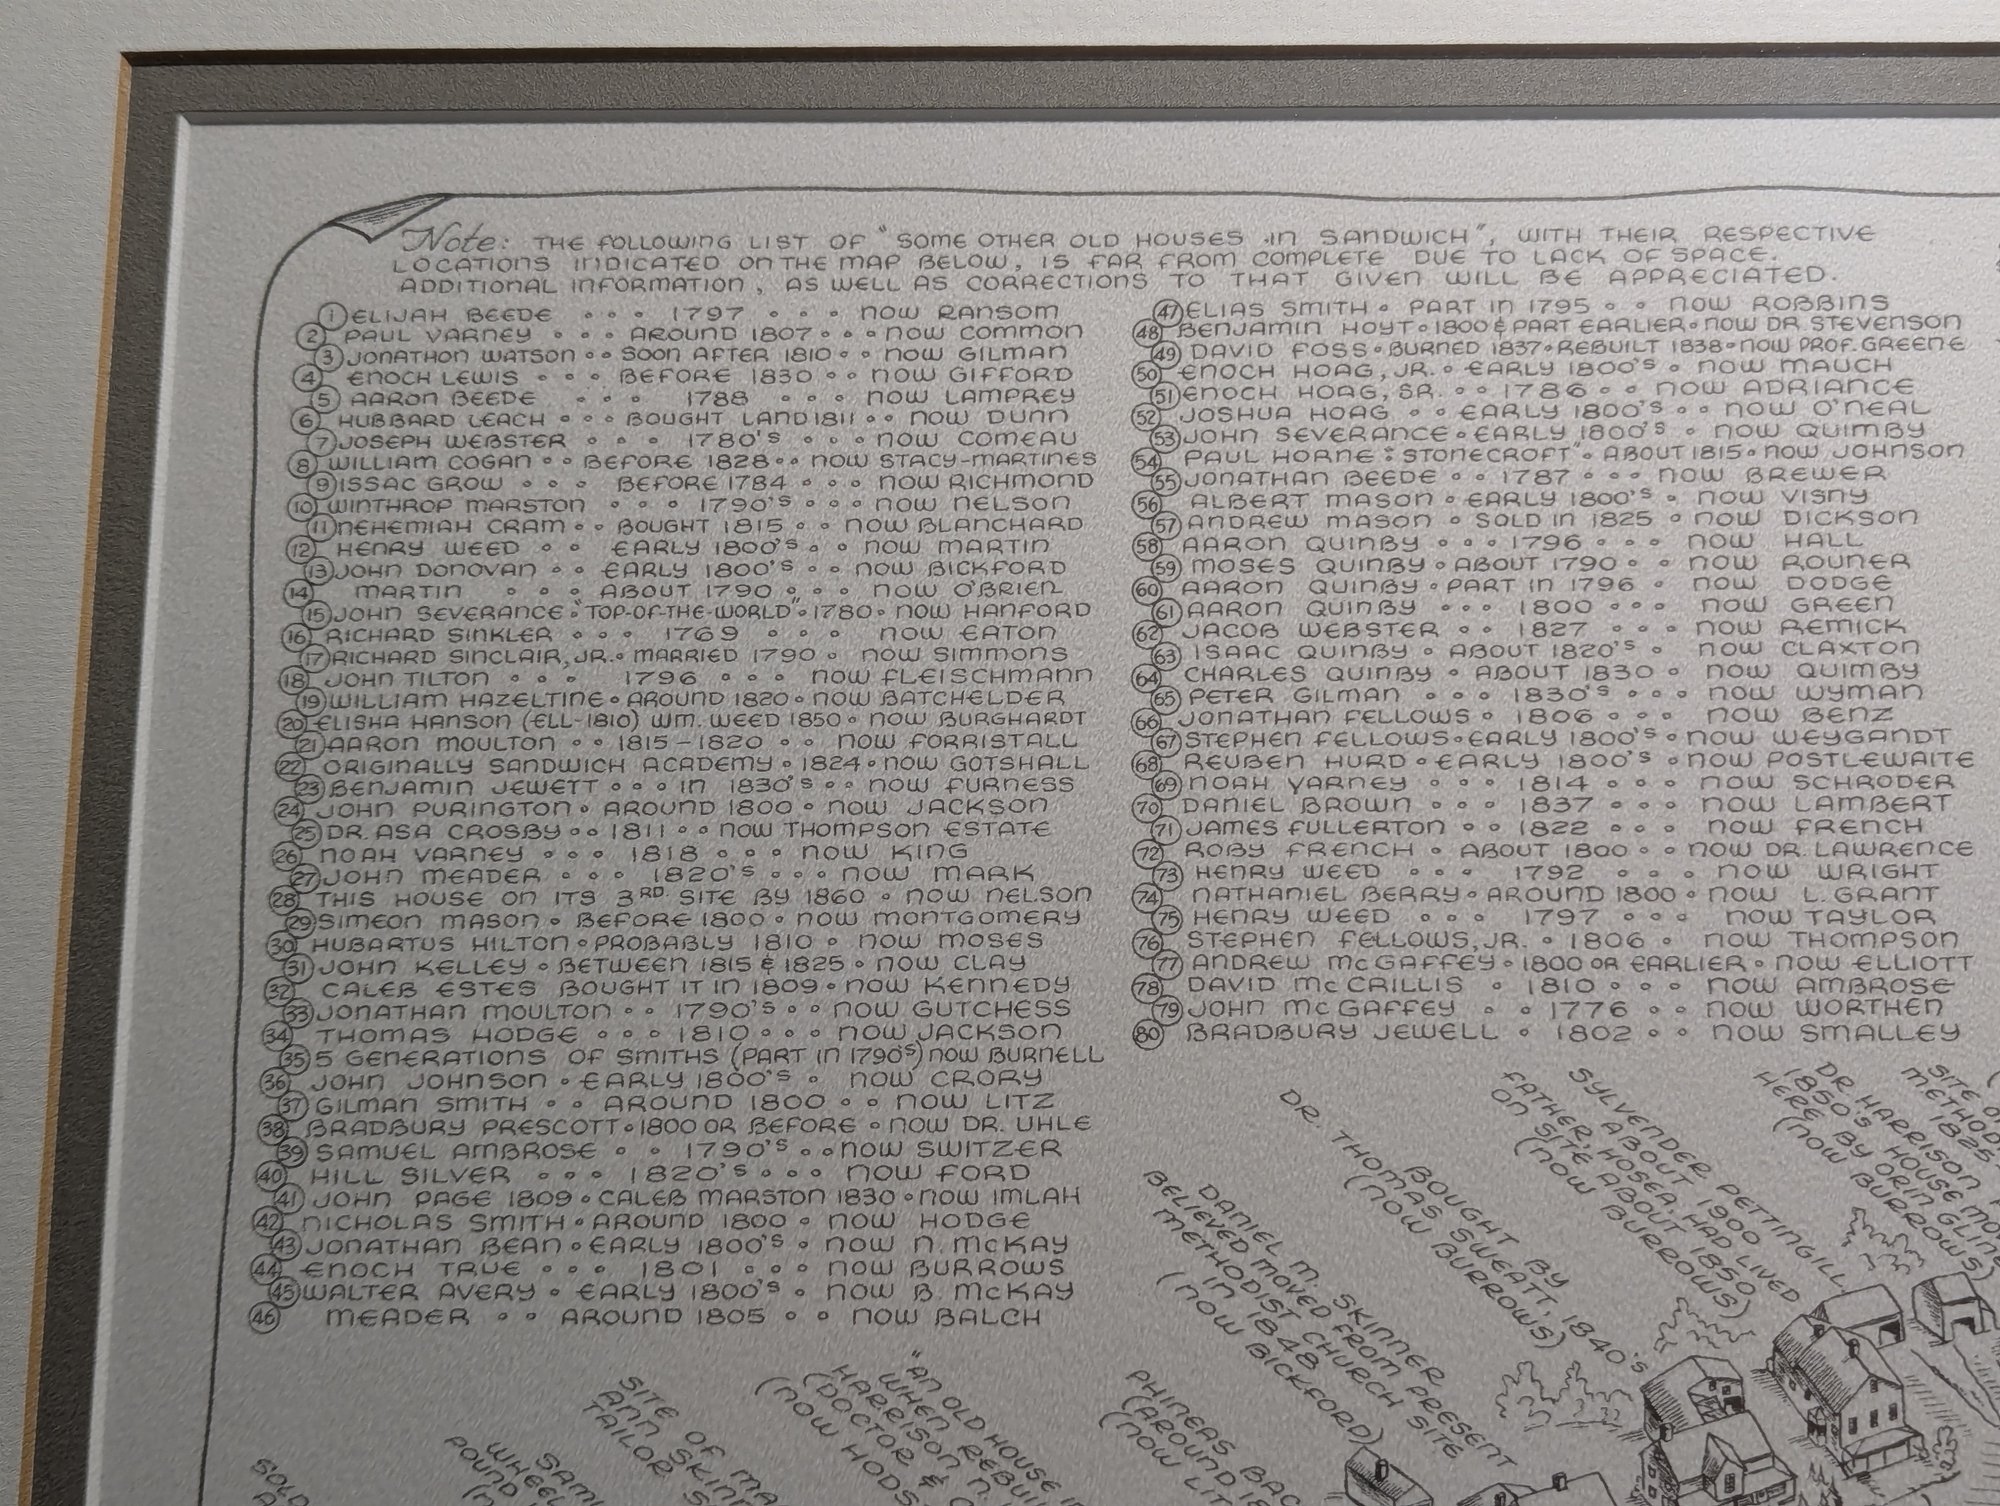 Note: THE FOLLOWING LIST OF "SOME OTHER OLD HOUSES IN SANDWICH", WITH THEIR RESPECTIVE
LOCATIONS INDICATED ON THE MAP BELOW, IS FAR FROM COMPLETE DUE TO LACK OF SPACE.
ADDITIONAL INFORMATION, AS WELL AS CORRECTIONS TO THAT GIVEN WILL BE APPRECIATED.
1 ELIJAH BEEDE ∘ ∘ ∘ 1797 ∘ ∘ ∘ NOW RANSOM
2 PAUL VARNEY ∘ ∘ ∘ AROUND 1807 ∘ ∘ ∘ NOW COMMON
3 JONATHON WATSON ∘ ∘ SOON AFTER 1810 ∘ ∘ NOW GILMAN
4 ENOCH LEWIS ∘ ∘ ∘ BEFORE 1830 ∘ ∘ NOW GIFFORD
5 AARON BEEDE ∘ ∘ ∘ 1788 ∘ ∘ ∘ NOW LAMPREY
6 HUBBARD LEACH ∘ ∘ ∘ BOUGHT LAND 1811 ∘ ∘ NOW DUNN
7 JOSEPH WEBSTER ∘ ∘ ∘ 1780'S ∘ ∘ ∘ NOW COMEAU
8 WILLIAM COGAN ∘ ∘ BEFORE 1828 ∘ ∘ NOW STACY-MARTINES
9 ISSAC GROW ∘ ∘ ∘ BEFORE 1784 ∘ ∘ ∘ NOW RICHMOND
10 WINTHROP MARSTON ∘ ∘ ∘ 1790'S ∘ ∘ ∘ NOW NELSON
11 NEHEMIAH CRAM ∘ ∘ BOUGHT 1815 ∘ ∘ NOW BLANCHARD
12 HENRY WEED ∘ ∘ EARLY 1800'S ∘ ∘ NOW MARTIN
13 JOHN DONOVAN ∘ ∘ EARLY 1800'S ∘ ∘ NOW BICKFORD
14 MARTIN ∘ ∘ ∘ ABOUT 1790 ∘ ∘ ∘ NOW O'BRIEN
15 JOHN SEVERANCE ∘ "TOP-OF-THE-WORLD" ∘ 1780 ∘ NOW HANFORD
16 RICHARD SINKLER ∘ ∘ ∘ 1769 ∘ ∘ ∘ NOW EATON
17 RICHARD SINCLAIR, JR. ∘ MARRIED 1790 ∘ NOW SIMMONS
18 JOHN TILTON ∘ ∘ ∘ 1796 ∘ ∘ ∘ NOW FLEISCHMANN
19 WILLIAM HAZELTINE ∘ AROUND 1820 ∘ NOW BATCHELDER
20 ELISHA HANSON (ELL-1810) WM. WEED 1850 ∘ NOW BURGHARDT
21 AARON MOULTON ∘ ∘ 1815-1820 ∘ ∘ NOW FORRISTALL
22 ORIGINALLY SANDWICH ACADEMY ∘ 1824 ∘ NOW GOTSHALL
23 BENJAMIN JEWETT ∘ ∘ ∘ IN 1830'S ∘ ∘ NOW FURNESS
24 JOHN PURINGTON ∘ AROUND 1800 ∘ NOW JACKSON
25 DR. ASA CROSBY ∘ ∘ 1811 ∘ ∘ NOW THOMPSON ESTATE
26 NOAH VARNEY ∘ ∘ ∘ 1818 ∘ ∘ ∘ NOW KING
27 JOHN MEADER ∘ ∘ ∘ 1820'S ∘ ∘ ∘ NOW MARK
28 THIS HOUSE ON ITS 3RD. SITE BY 1860 ∘ NOW NELSON
29 SIMEON MASON ∘ BEFORE 1800 ∘ NOW MONTGOMERY
30 HUBARTUS HILTON ∘ PROBABLY 1810 ∘ NOW MOSES
31 JOHN KELLEY ∘ BETWEEN 1815 & 1825 ∘ NOW CLAY
32 CALEB ESTES BOUGHT IT IN 1809 ∘ NOW KENNEDY
33 JONATHAN MOULTON ∘ ∘ 1790'S ∘ ∘ NOW GUTCHESS
34 THOMAS HODGE ∘ ∘ ∘ 1810 ∘ ∘ ∘ NOW JACKSON
35 5 GENERATIONS OF SMITHS (PART IN 1790'S) NOW BURNELL
36 JOHN JOHNSON ∘ EARLY 1800'S ∘ NOW CRORY
37 GILMAN SMITH ∘ ∘ AROUND 1800 ∘ ∘ NOW LITZ
38 BRADBURY PRESCOTT ∘ 1800 OR BEFORE ∘ NOW DR. UHLE
39 SAMUEL AMBROSE ∘ ∘ 1790'S ∘ ∘ NOW SWITZER
40 HILL SILVER ∘ ∘ ∘ 1820'S ∘ ∘ ∘ NOW FORD
41 JOHN PAGE 1809 ∘ CALEB MARSTON 1830 ∘ NOW IMLAH
42 NICHOLAS SMITH ∘ AROUND 1800 ∘ NOW HODGE
43 JONATHAN BEAN ∘ EARLY 1800'S ∘ NOW N. McKAY
44 ENOCH TRUE ∘ ∘ ∘ 1801 ∘ ∘ ∘ NOW BURROWS
45 WALTER AVERY ∘ EARLY 1800'S ∘ NOW B. McKAY
46 MEADER ∘ ∘ AROUND 1805 ∘ ∘ NOW BALCH
47 ELIAS SMITH ∘ PART IN 1795 ∘ ∘ NOW ROBBINS
48 BENJAMIN HOYT ∘ 1800 & PART EARLIER ∘ NOW DR. STEVENSON
49 DAVID FOSS ∘ BURNED 1837 ∘ REBUILT 1838 ∘ NOW PROF. GREENE
50 ENOCH HOAG, JR. ∘ EARLY 1800'S ∘ NOW MAUCH
51 ENOCH HOAG, SR. ∘ ∘ 1786 ∘ ∘ NOW ADRIANCE
52 JOSHUA HOAG ∘ ∘ EARLY 1800'S ∘ ∘ NOW O'NEAL
53 JOHN SEVERANCE ∘ EARLY 1800'S ∘ NOW QUIMBY
54 PAUL HORNE ∘ "STONECROFT" ∘ ABOUT 1815 ∘ NOW JOHNSON
55 JONATHAN BEEDE ∘ ∘ 1787 ∘ ∘ ∘ NOW BREWER
56 ALBERT MASON ∘ EARLY 1800'S ∘ NOW VISNY
57 ANDREW MASON ∘ SOLD IN 1825 ∘ NOW DICKSON
58 AARON QUINBY ∘ ∘ ∘ 1796 ∘ ∘ ∘ NOW HALL
59 MOSES QUINBY ∘ ABOUT 1790 ∘ ∘ NOW ROUNER
60 AARON QUINBY ∘ PART IN 1796 ∘ NOW DODGE
61 AARON QUINBY ∘ ∘ ∘ 1800 ∘ ∘ ∘ NOW GREEN
62 JACOB WEBSTER ∘ ∘ 1827 ∘ ∘ NOW REMICK
63 ISAAC QUINBY ∘ ABOUT 1820'S ∘ NOW CLAXTON
64 CHARLES QUINBY ∘ ABOUT 1830 ∘ NOW QUIMBY
65 PETER GILMAN ∘ ∘ ∘ 1830'S ∘ ∘ ∘ NOW WYMAN
66 JONATHAN FELLOWS ∘ 1806 ∘ ∘ ∘ NOW BENZ
67 STEPHEN FELLOWS ∘ EARLY 1800'S ∘ NOW WEYGANDT
68 REUBEN HURD ∘ EARLY 1800'S ∘ NOW POSTLEWAITE
69 NOAH VARNEY ∘ ∘ ∘ 1814 ∘ ∘ ∘ NOW SCHRODER
70 DANIEL BROWN ∘ ∘ ∘ 1837 ∘ ∘ ∘ NOW LAMBERT
71 JAMES FULLERTON ∘ ∘ 1822 ∘ ∘ ∘ NOW FRENCH
72 ROBY FRENCH ∘ ABOUT 1800 ∘ ∘ NOW DR. LAWRENCE
73 HENRY WEED ∘ ∘ ∘ 1792 ∘ ∘ ∘ NOW WRIGHT
74 NATHANIEL BERRY ∘ AROUND 1800 ∘ NOW L. GRANT
75 HENRY WEED ∘ ∘ ∘ 1797 ∘ ∘ ∘ NOW TAYLOR
76 STEPHEN FELLOWS, JR. ∘ 1806 ∘ NOW THOMPSON
77 ANDREW McGAFFEY ∘ 1800 OR EARLIER ∘ NOW ELLIOTT
78 DAVID McCRILLIS ∘ 1810 ∘ ∘ ∘ NOW AMBROSE
79 JOHN McGAFFEY ∘ ∘ 1776 ∘ ∘ NOW WORTHEN
80 BRADBURY JEWELL ∘ 1802 ∘ ∘ NOW SMALLEY
BOUGHT BY
DR. THOMAS SWEATT, 1840'S
(NOW BURROWS)
SYLVENDER PETTINGILL
FATHER, HOSEA, HAD LIVED
ON SITE ABOUT 1850
(NOW BURROWS)
DR. HARRISON
1850'S HOUSE
HERE BY ORIN
(NOW BURROWS)
SITE
METHOD
1825
DANIEL M. SKINNER
BELIEVED MOVED FROM PRESENT
METHODIST CHURCH SITE
IN 1848
(NOW BICKFORD)
PHINEAS
(AROUND
(NOW
"AN OLD HOUSE
WHEN
HARRISON N.
(DOCTOR &
(NOW
SITE OF
ANN
TAILOR
WHEEL
POUND
SOLD